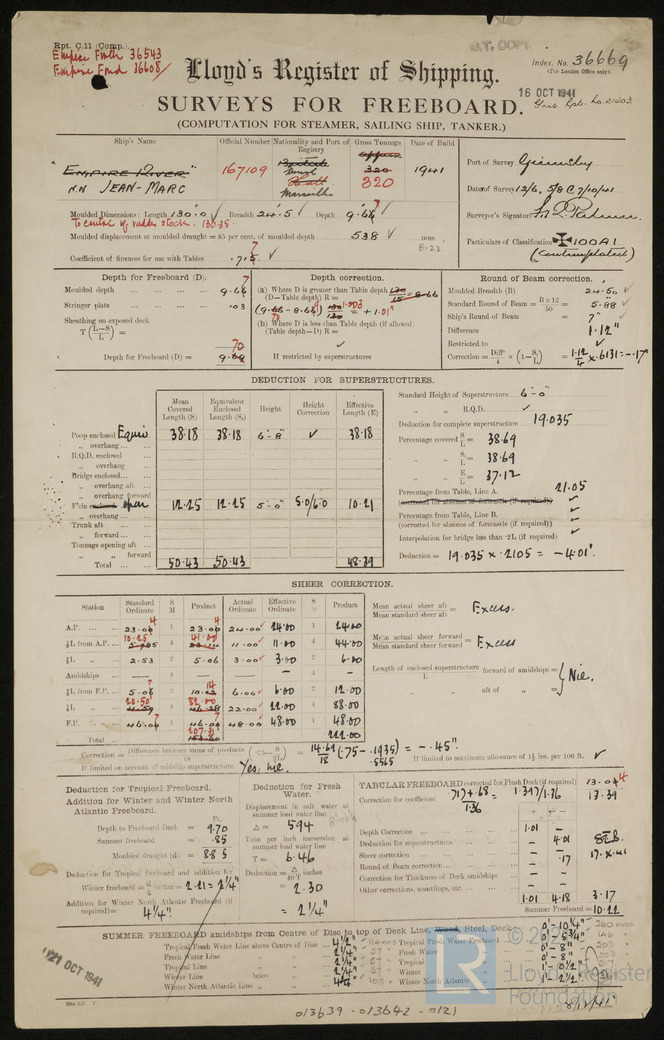 Rpt. C.11 (Comp.).
Empire Forth 36543
Empire Fond 36608/
B.T. COPY
Index. No. 36669
(For London Office only).
Lloyd's Register of Shipping.
16 OCT 1941
SURVEYS FOR FREEBOARD.
(COMPUTATION FOR STEAMER, SAILING SHIP, TANKER.)
Ship's Name
Official Number
Nationality and Port of Registry
Gross Tonnage
Date of Build
"EMPIRE RIVER"
NN JEAN-MARC
167109
British
Hull
Marseilles
320
320
1941
Port of Survey Grimsby
Date of Survey 12/6, 5/8 & 7/10/41
Surveyor's Signature
Particulars of Classification ✠100A1
(Contemplated)
Moulded Dimensions: Length 130.0 Breadth 24.5 Depth 9.67
To centre of rudder stock. 130.35
Moulded displacement at moulded draught = 85 per cent. of moulded depth 538 tons
8.22
Coefficient of fineness for use with Tables .715
Depth for Freeboard (D).
Moulded depth 9.67
Stringer plate .03
Sheathing on exposed deck
T (L-S/L) =
Depth for Freeboard (D) = 9.70
Depth correction.
(a) Where D is greater than Table depth
(D—Table depth) R =
= +1.01"
(b) Where D is less than Table depth (if allowed)
(Table depth—D) R =
If restricted by superstructures
Round of Beam correction.
Moulded Breadth (B) 24.50
Standard Round of Beam = B×12/50 = 5.88
Ship's Round of Beam = 7"
Difference 1.12"
Restricted to
Correction = Diffce/4 × (1-S₁/L) = 1.12/4 × .6131 = -.17"
DEDUCTION FOR SUPERSTRUCTURES.
Mean Covered Length (S)
Equivalent Enclosed Length (S₁)
Height
Height Correction
Effective Length (E)
Poop enclosed Equiv 38.18 38.18 6-8" ✓ 38.18
„ overhang
R.Q.D. enclosed
„ overhang
Bridge enclosed
„ overhang aft
„ overhang forward
F'cle open 12.25 12.25 5-0" 5.0/6.0 10.21
„ overhang
Trunk aft
„ forward
Tonnage opening aft
„ „ forward
Total 50.43 50.43 48.39
Standard Height of Superstructure 6-0"
„ „ R.Q.D.
Deduction for complete superstructure 19.035
Percentage covered S/L = 38.69
„ „ S₁/L = 38.69
„ „ E/L = 37.12
Percentage from Table, Line A. 21.05
(corrected for absence of forecastle (if required))
Percentage from Table, Line B.
(corrected for absence of forecastle (if required))
Interpolation for bridge less than ·2L (if required)
Deduction = 19.035 × .2105 = -4.01"
SHEER CORRECTION.
Station
Standard Ordinate
S M
Product
Actual Ordinate
Effective Ordinate
S M
Product
A.P. 23.04 1 23.04 24.00 24.00 1 24.00
⅙L from A.P. 10.25 4 41.00 11.00 11.00 4 44.00
⅓L „ 2.53 2 5.06 3.00 3.00 2 6.00
Amidships — 4 — — — 4 —
⅓L from F.P. 5.07 2 10.14 6.00 6.00 2 12.00
⅙L „ 20.50 4 82.00 22.00 22.00 4 88.00
F.P. 46.07 1 46.07 48.00 48.00 1 48.00
Total 207.31 222.00
Mean actual sheer aft / Mean standard sheer aft = Excess.
Mean actual sheer forward / Mean standard sheer forward = Excess
Length of enclosed superstructure / L forward of amidships =
„ „ aft of „ = } Nil.
Correction = Difference between sums of products / 18 (·75 - S/2L) = 14.69/18 (.75 - .1935) = -.45".
.5565
If limited on account of midship superstructure. Yes, nil.
If limited to maximum allowance of 1½ ins. per 100 ft. ✓
Deduction for Tropical Freeboard.
Addition for Winter and Winter North Atlantic Freeboard.
Ft.
Depth to Freeboard Deck = 9.70
Summer freeboard = .85
Moulded draught (d) = 8.85
Deduction for Tropical freeboard and addition for Winter freeboard = d/4 inches = 2.21 = 2¼"
Addition for Winter North Atlantic Freeboard (if required) = 4¼"
Deduction for Fresh Water.
Displacement in salt water at summer load water line
Δ = 594
Tons per inch immersion at summer load water line
T = 6.46
Deduction = Δ/40T inches
= 2.30
= 2¼"
TABULAR FREEBOARD corrected for Flush Deck (if required) 13.04
Correction for coefficient .717 + .68 / 1.36 = 1.397/1.36 13.39
+ -
Depth Correction 1.01 —
Deduction for superstructures — 4.01
Sheer correction — —
Round of Beam correction — .17
Correction for Thickness of Deck amidships — —
Other corrections, scantlings, etc. — —
1.01 4.18 3.17
Summer Freeboard = 10.22
SUMMER FREEBOARD amidships from Centre of Disc to top of Deck Line, Wood, Steel, Deck: 0'-10¼"
Tropical Fresh Water Line above Centre of Disc 4½"
Fresh Water Line „ „ 2¼"
Tropical Line „ „ 2¼"
Winter Line below „ 2¼"
Winter North Atlantic Line „ „ 4¼"
Tropical Fresh Water Freeboard 0'-5¾"
Fresh Water „ 0'-8"
Tropical „ 0'-8"
Winter „ 1'-0½"
Winter North Atlantic „ 1'-2½"
21 OCT 1941
LR
Lloyd's Register
Foundation
013639 - 013642 - 0121